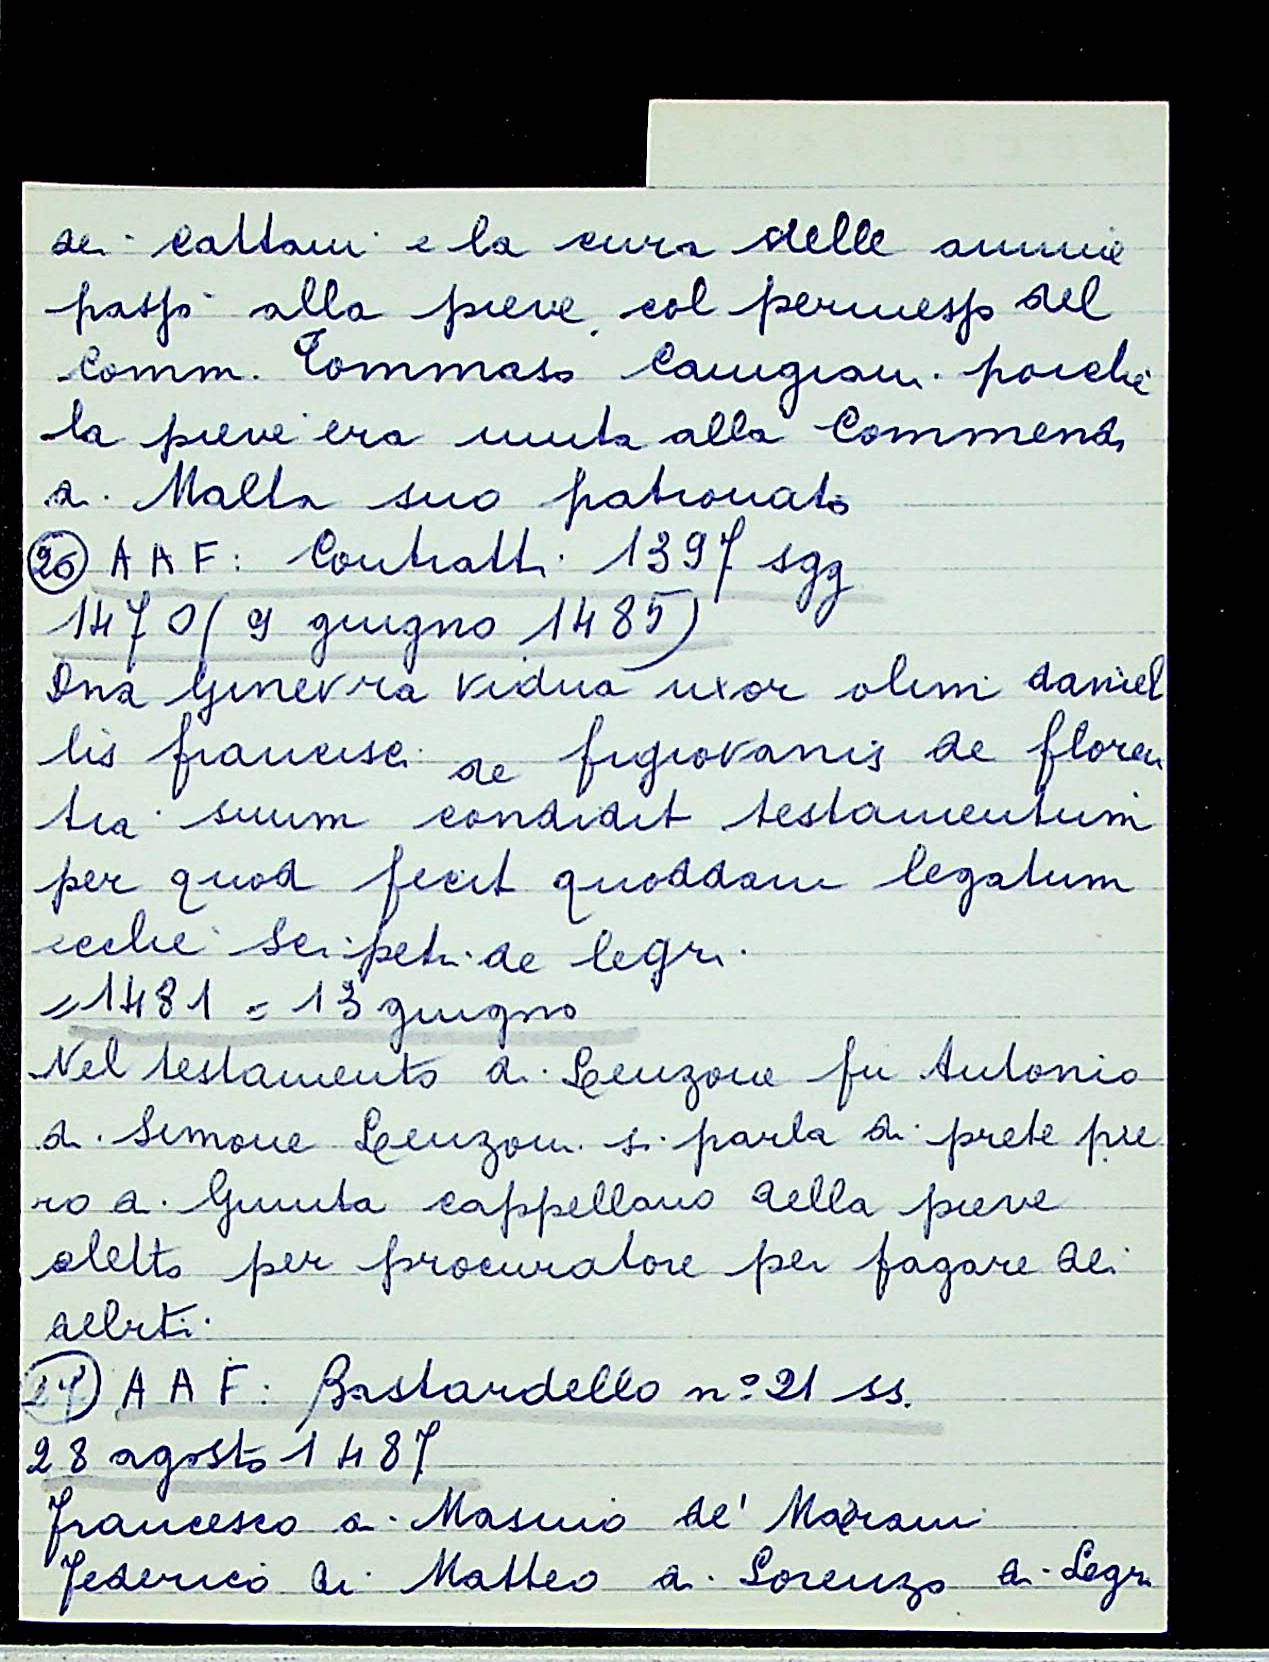 dei Cattani e la cura delle anime
passò alla pieve col permesso del
Comm. Tommaso Canigiani poichè
la pieve era unita alla Commenda
di Malta suo patronato
26 A A F: Contratti 1397 sgg
1470 (9 giugno 1485)
Dna Ginevra vidua uxor olim daniel
lis francisci de figiovanis de floren
tia suum condidit testamentum
per quod fecit quoddam legatum
ecclie Sci petri de legri.
= 1481 = 13 giugno
Nel testamento di Lenzone fu Antonio
di Simone Lenzoni si parla di prete pie
ro di Giunta cappellano della pieve
eletto per procuratore per pagare dei
debiti.
27 A A F: Bastardello n° 21 ss.
28 agosto 1487
Francesco di Masino de'
Federico di Matteo di Lorenzo di Legri